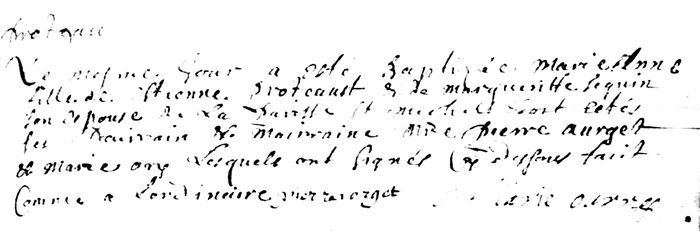 Le mesme jour a esté baptizée marie anne
fille de Estienne proteaust & de margueritte seguin
son espouse de La paroisse st michel sont estés
ses pairrain & mairraine pierre aurget
& marie Lesquels ont signés cy dessous fait
Comme a Lordinaire pierre orget marie